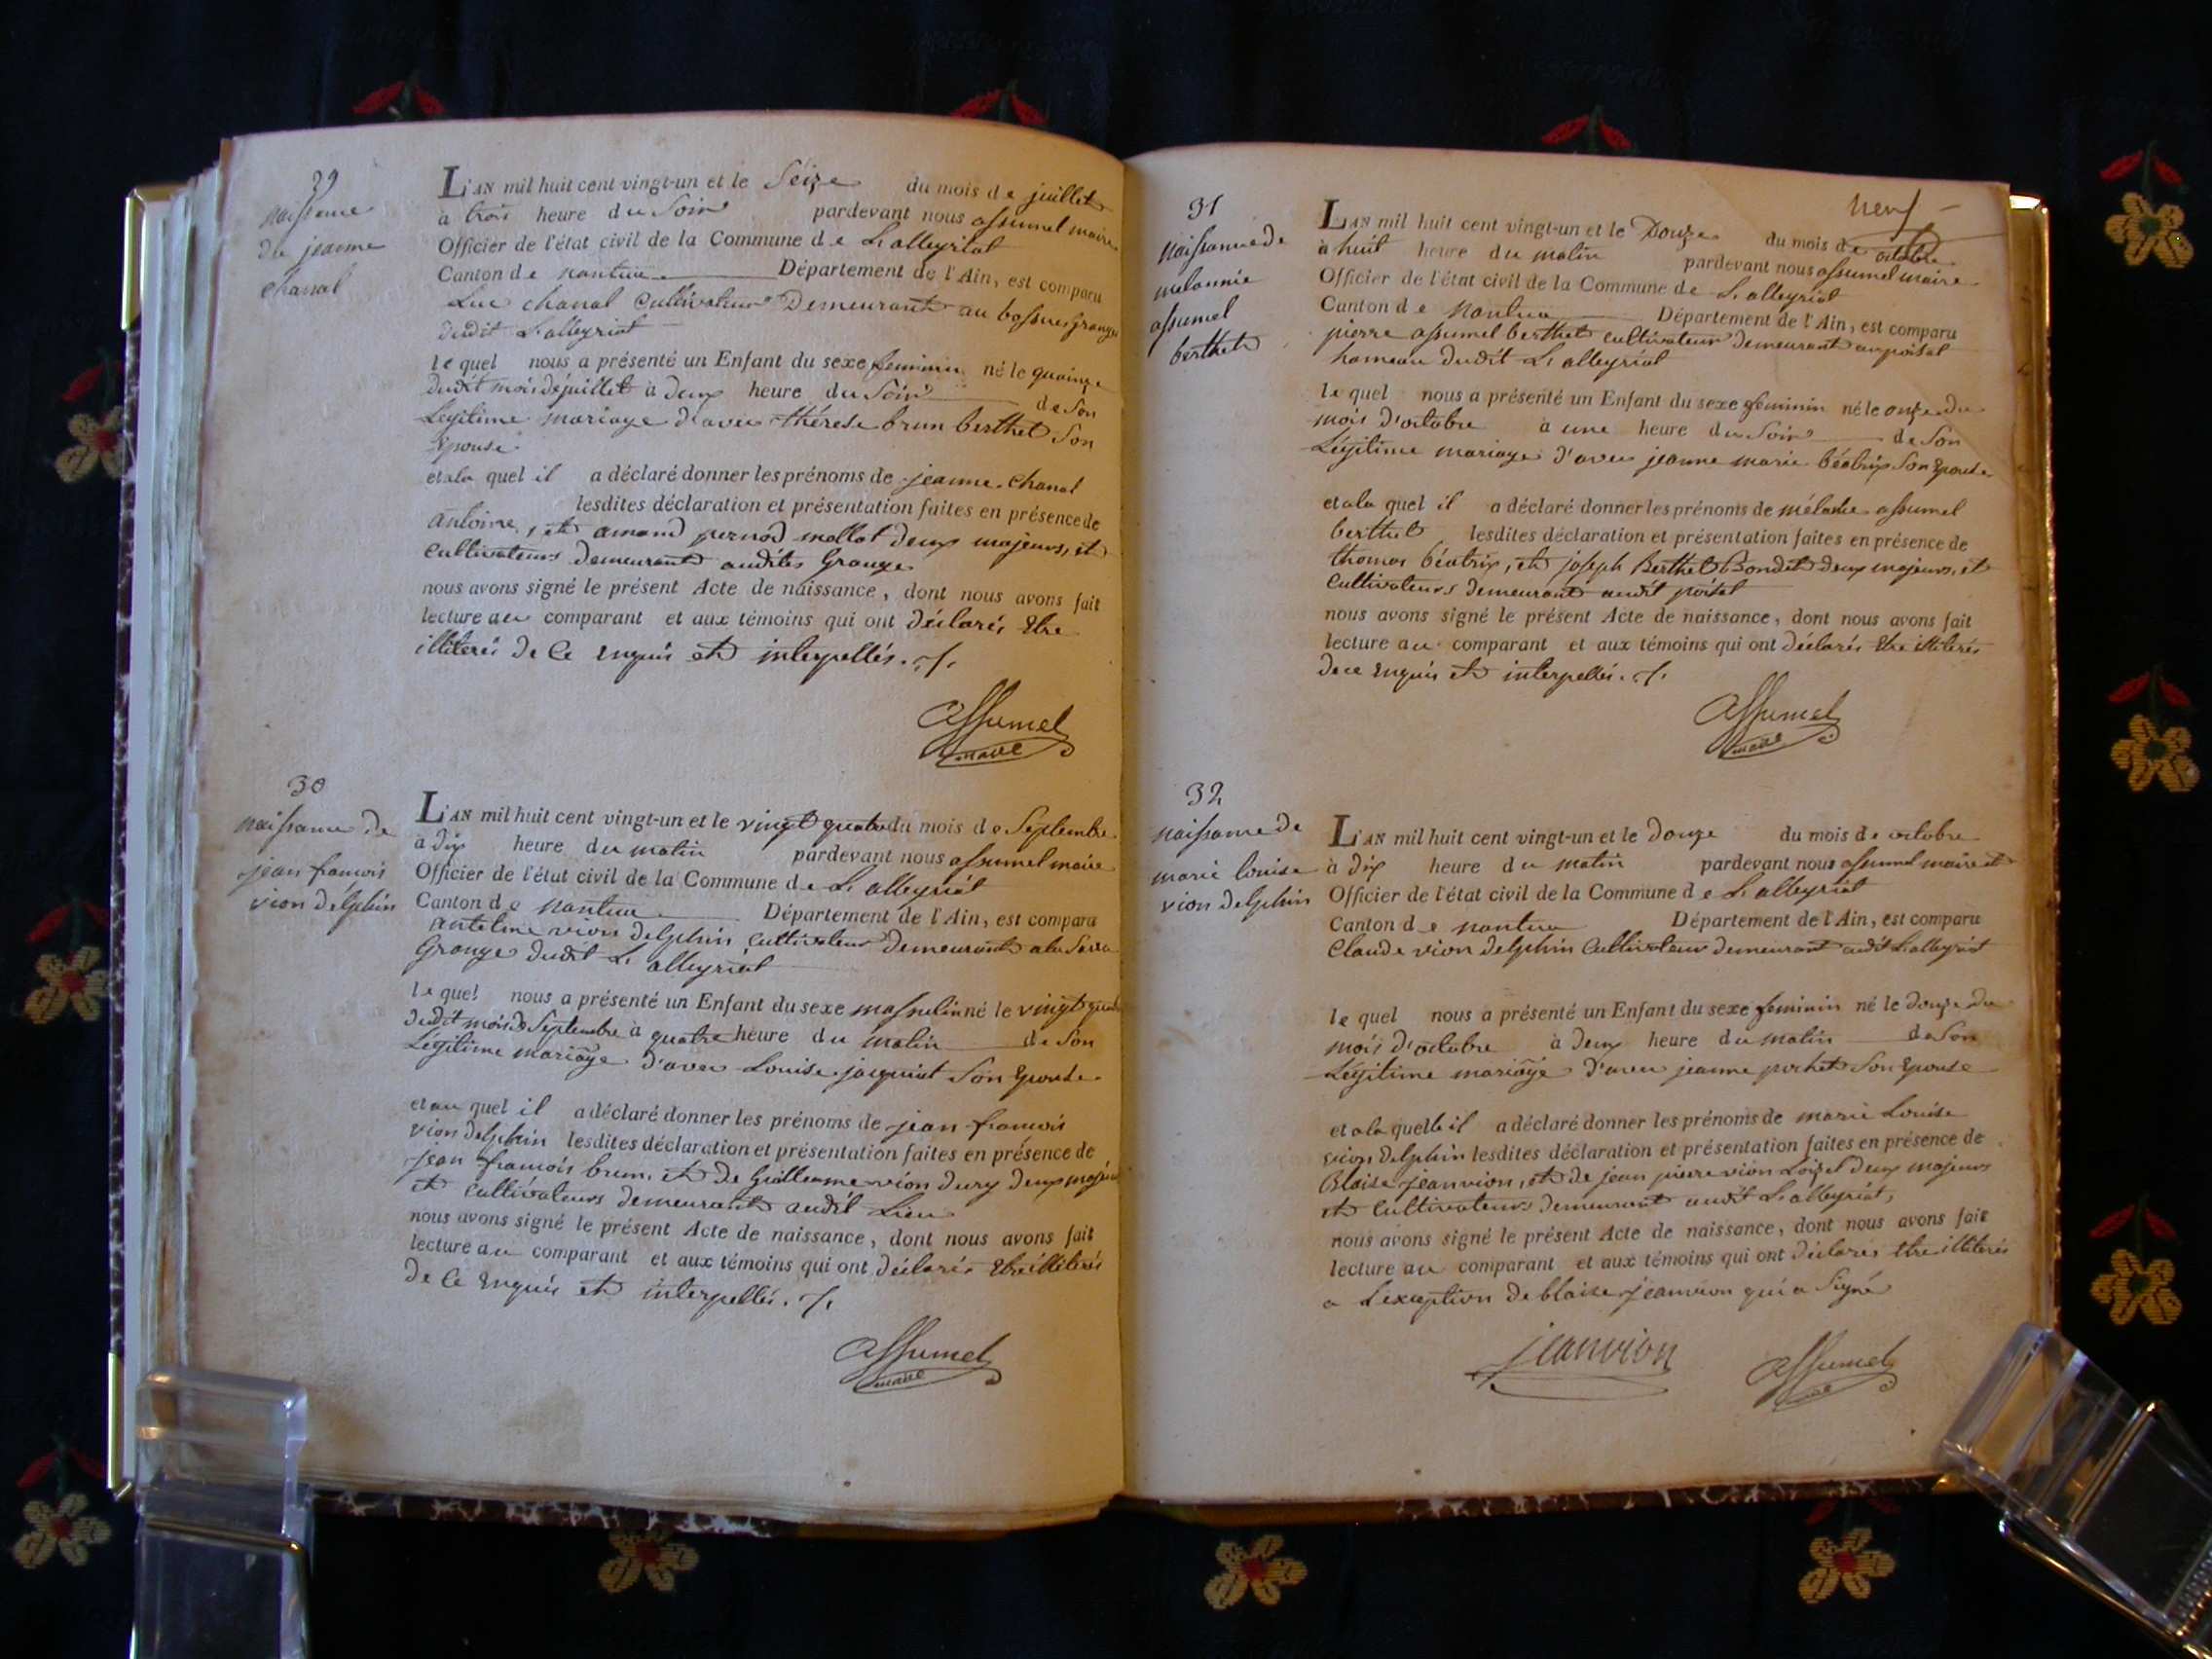 29
naissance
de jeanne
chanal
L'AN mil huit cent vingt-un et le Seize du mois de juillet
à trois heure du Soir pardevant nous assumel maire
Officier de l'état civil de la Commune de L'alleyriat
Canton de nantua Département de l'Ain, est comparu
Luc chanal Cultivateur Demeurant au granges
dudit L'alleyriat
lequel nous a présenté un Enfant du sexe feminin né le quainze
dudit mois de juillet à deux heure du Soir de Son
Legitime mariage d'avec thérese brun berthet Son
Epouse
et a la quel il a déclaré donner les prénoms de jeanne chanal
lesdites déclaration et présentation faites en présence de
antoine, et amand pernod mallat deux majeurs, et
Cultivateurs demeurant audites Grange
nous avons signé le présent Acte de naissance, dont nous avons fait
lecture au comparant et aux témoins qui ont déclarés Etre
illiterés de Ce Enquis et interpellés. ./.
Assumel
maire
30
naissance de
jean francois
vion delphin
L'AN mil huit cent vingt-un et le vingt quatre du mois de Septembre
à dix heure du matin pardevant nous assumel maire
Officier de l'état civil de la Commune de L'alleyriat
Canton de nantua Département de l'Ain, est comparu
antelme vion delphin Cultivateur Demeurant a la
Grange dudit L'alleyriat
lequel nous a présenté un Enfant du sexe masculin né le vingt quatre
dudit mois de Septembre à quatre heure du matin de Son
Legitime mariage d'avec Louise jacquiat Son Epouse
et au quel il a déclaré donner les prénoms de jean francois
vion delphin lesdites déclaration et présentation faites en présence de
jean francois brun, et de Guilleaume vion dury deux majeurs
et Cultivateurs demeurant audit Lieu
nous avons signé le présent Acte de naissance, dont nous avons fait
lecture au comparant et aux témoins qui ont déclarés Etre illiterés
de Ce Enquis et interpellés. ./.
Assumel
maire
neuf
31
naissance de
melannie
assumel
berthet
L'AN mil huit cent vingt-un et le Douze du mois de octobre
à huit heure du matin pardevant nous assumel maire
Officier de l'état civil de la Commune de L'alleyriat
Canton de Nantua Département de l'Ain, est comparu
pierre assumel berthet cultivateur demeurant au poisat
hameau dudit L'alleyriat
lequel nous a présenté un Enfant du sexe feminin né le onze du
mois d'octobre à une heure du Soir de Son
Légitime mariage d'avec jeanne marie béatrix Son Epouse
et a la quel il a déclaré donner les prénoms de mélanie assumel
berthet lesdites déclaration et présentation faites en présence de
thomas béatrix, et joseph Berthet Bondet deux majeurs, et
Cultivateurs demeurant audit poisat
nous avons signé le présent Acte de naissance, dont nous avons fait
lecture au comparant et aux témoins qui ont déclarés Etre illiterés
de ce Enquis et interpellés. ./.
Assumel
maire
32
naissance de
marie louise
vion delphin
L'AN mil huit cent vingt-un et le douze du mois de octobre
à dix heure du matin pardevant nous assumel maire et
Officier de l'état civil de la Commune de L'alleyriat
Canton de nantua Département de l'Ain, est comparu
Claude vion delphin Cultivateur demeurant audit L'alleyriat
lequel nous a présenté un Enfant du sexe feminin né le douze du
mois d'octobre à deux heure du matin de Son
Légitime mariage d'avec jeanne pochet Son Epouse
et a la quelle il a déclaré donner les prénoms de marie Louise
vion delphin lesdites déclaration et présentation faites en présence de
Blaise jeanvion, et de jean pierre vion Loizel deux majeurs
et Cultivateurs demeurant audit L'alleyriat,
nous avons signé le présent Acte de naissance, dont nous avons fait
lecture au comparant et aux témoins qui ont déclarés Etre illiterés
a L'exception de blaise jeanvion qui a Signé
jeanvion
Assumel
maire